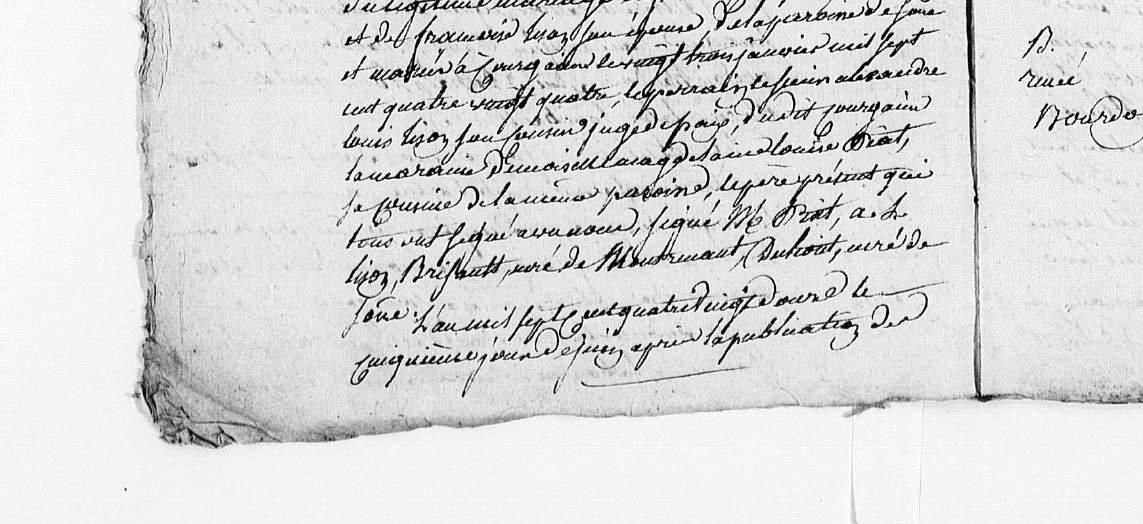 du legitime mariage
et de françoise lizon son épouse, de la paroisse de sône
et mariés à Courgain le vingt trois janvier mil sept
cent quatre vingt quatre, le parrain le sieur alexandre
louis lizon son Cousin juge de paix, dudit Courgain
la maraine Demoiselle magdelaine louise Piat,
sa Cousine de la même paroisse, le père présent qui
tous ont signé avec nous, signé M. Piat, a. L.
lizon, Brifault, curé de, curé de
sône. L'an mil sept Cent quatre vingt douze le
Cinquieme jour de juin après la publication des
B.
renée
Bourdo